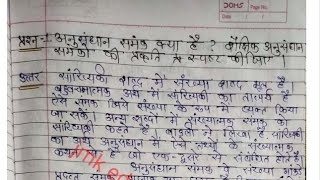 DOMS Page No.
Date / /
प्रश्न-1 अनुसंधान समंक क्या है ? शैक्षिक अनुसंधान
समंको की प्रकृति स्पष्ट कीजिए।
उत्तर सांख्यिकी शब्द में संख्या शब्द मूल है
बहुवचनात्मक अर्थ में सांख्यिकी का तात्पर्य है
ऐसे समंक जिन्हें संख्या के रूप में व्यक्त किया
जा सके। अन्य शब्दों में संख्यात्मक समंक को
सांख्यिकी कहते हैं। बाउली ने लिखा है सांख्यिकी
का अर्थ अनुसंधान में ऐसे तथ्यों के संख्यात्मक
कथन है जो एक दूसरे से संबंधित होते हैं।
अनुसंधान समंक वे संख्या